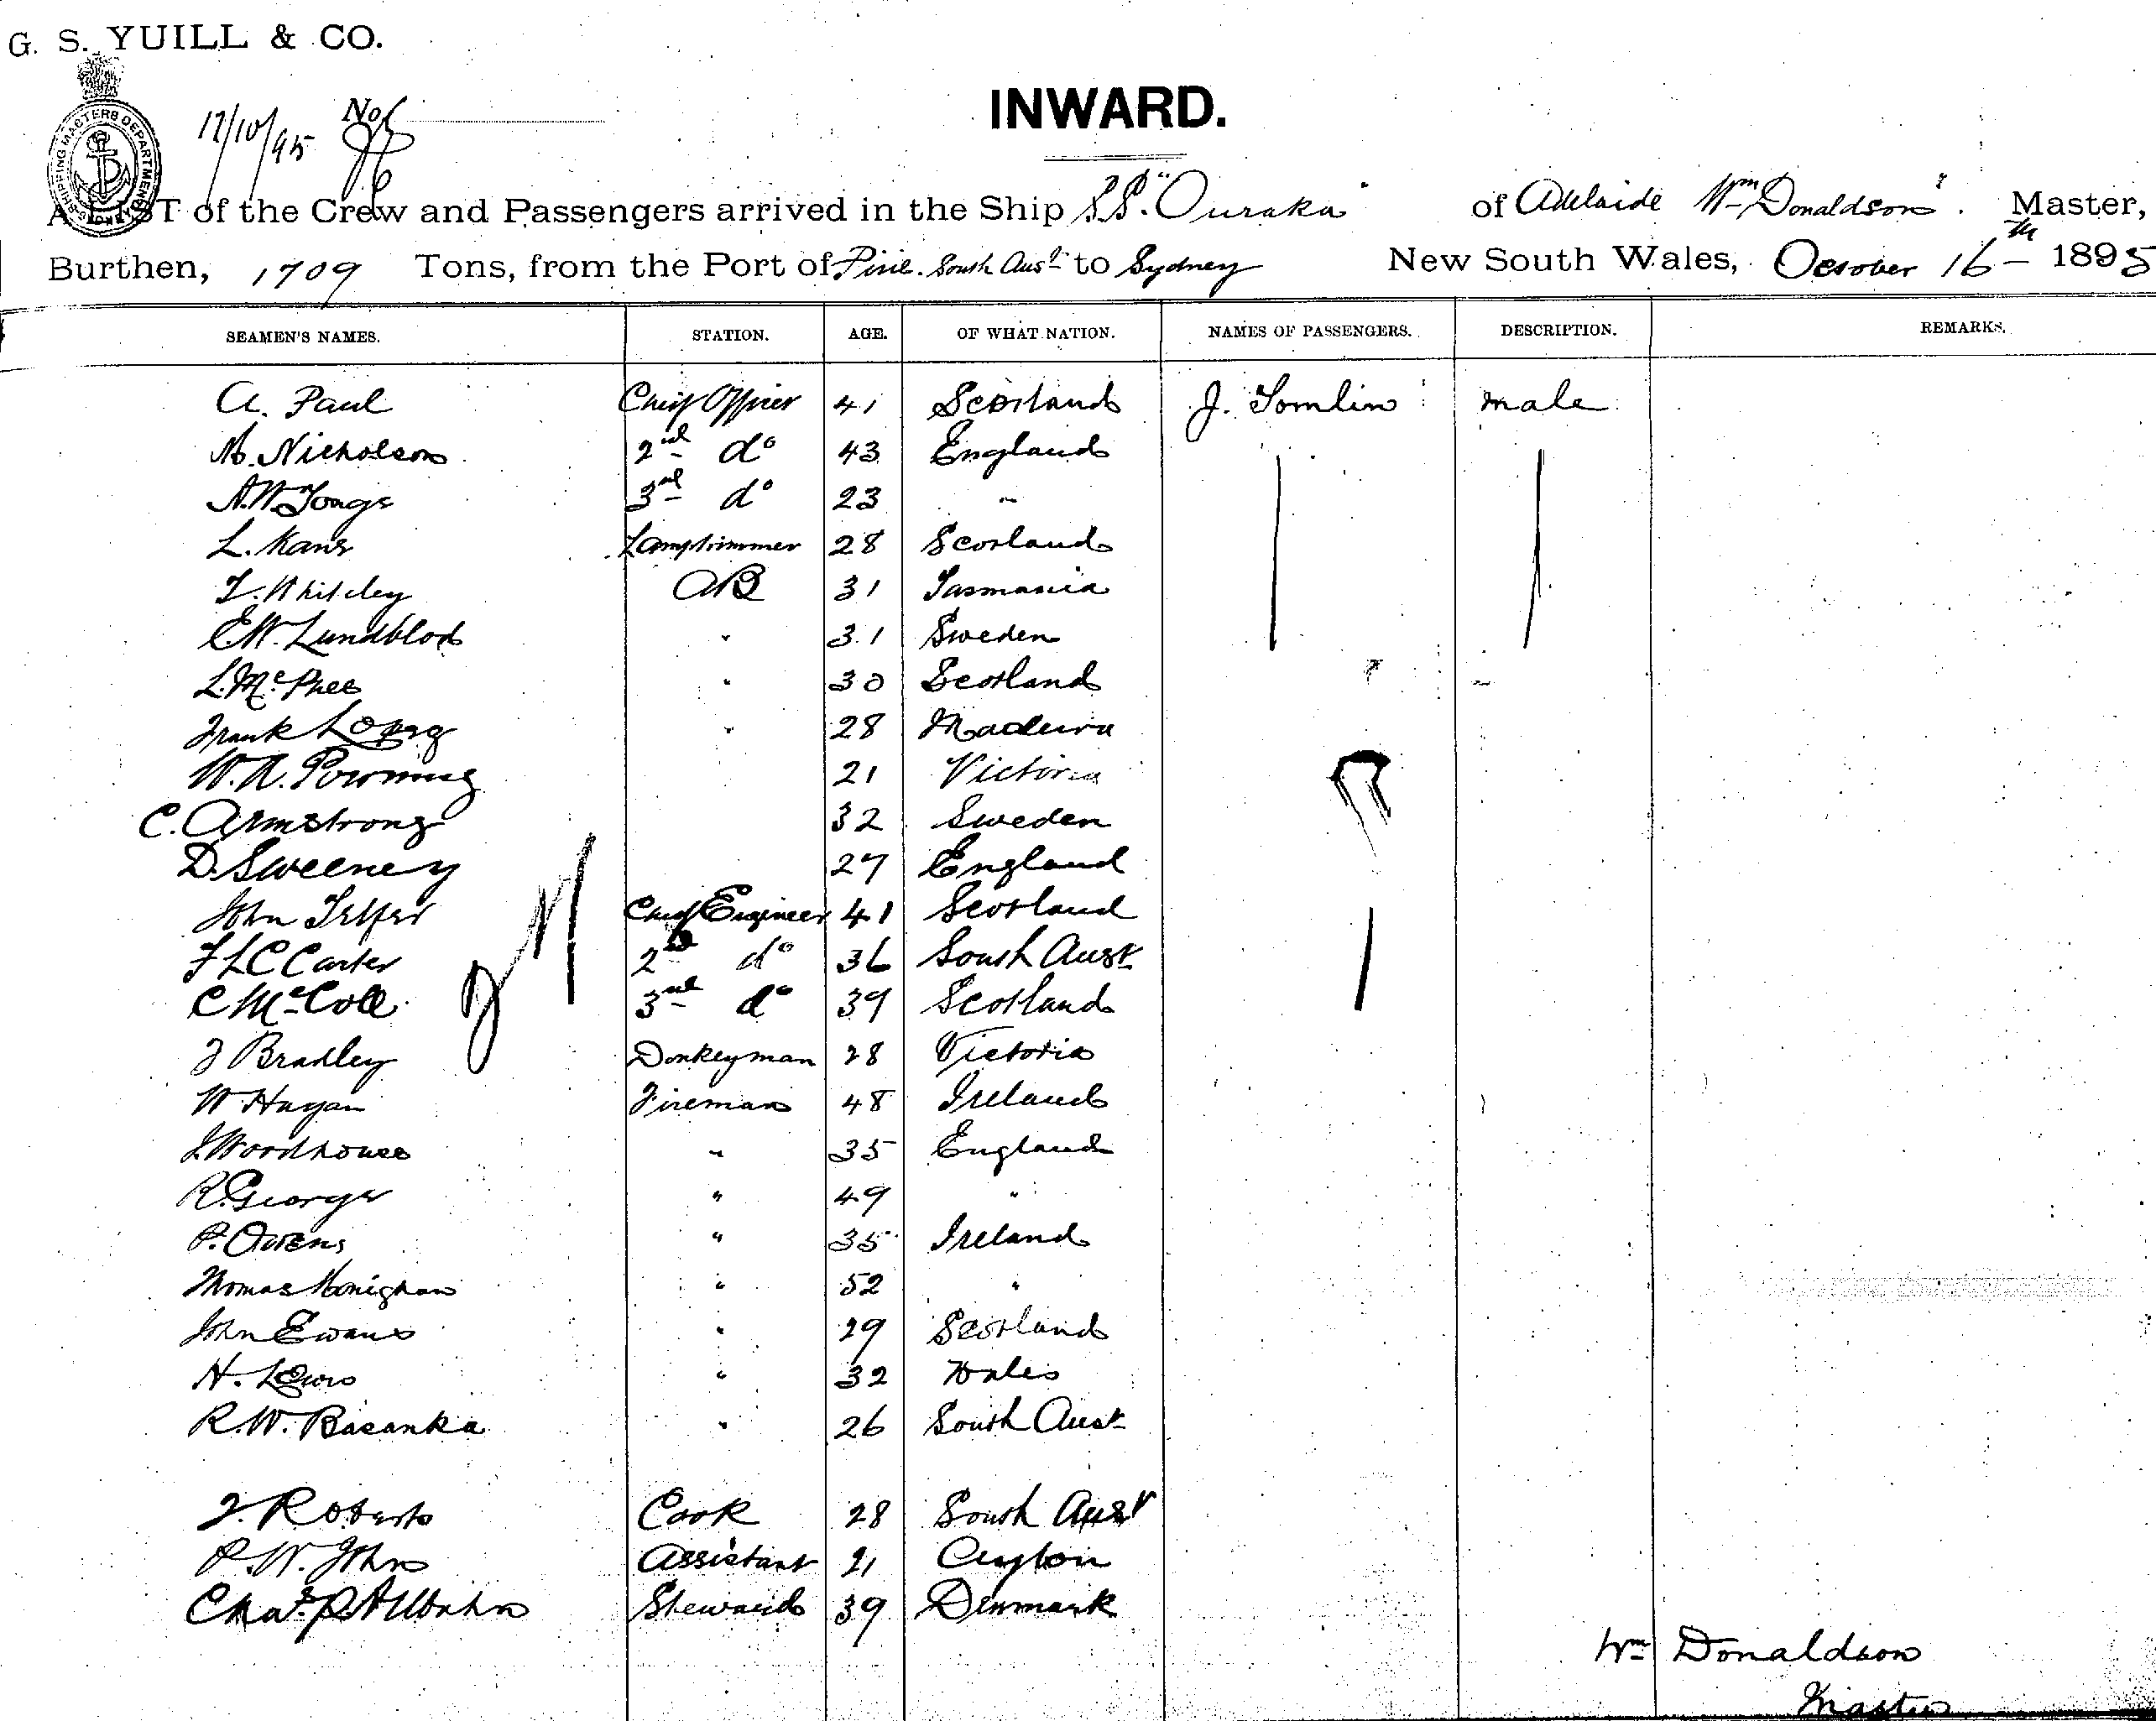 G. S. YUILL & CO.
SHIPPING MASTERS DEPARTMENT
17/10/95 No
INWARD.
A LIST of the Crew and Passengers arrived in the Ship S.S. "Ouraka" of Adelaide Wm Donaldson. Master,
Burthen, 1709 Tons, from the Port of Pirie. South Aust to Sydney New South Wales, October 16th 1895
SEAMEN'S NAMES. STATION. AGE. OF WHAT NATION. NAMES OF PASSENGERS. DESCRIPTION. REMARKS.
A. Paul Chief Officer 41 Scotland J. Tomlin male
M. Nicholson 2nd do 43 England
A.W. Tonge 3rd do 23 "
L. Kane Lamptrimmer 28 Scotland
T. Whiteley AB 31 Tasmania
C.W. Lundblod " 31 Sweden
L. McPhee " 30 Scotland
Frank Long " 28 Madeira
W. A. Powning 21 Victoria
C. Armstrong 32 Sweden
D. Sweeney 27 England
John Telfer Chief Engineer 41 Scotland
F L C Carter 2nd do 36 South Aust
C McColl 3rd do 39 Scotland
J Bradley Donkeyman 28 Victoria
W Hagan Fireman 48 Ireland
J Woodhouse " 35 England
R. George " 49 "
P. Owens " 35 Ireland
Thomas Monighan " 52 "
John Ewans " 29 Scotland
H. Lewis " 32 Wales
R. W. Basanka " 26 South Aust
J. Roberts Cook 28 South Aust
P. W. John Assistant 21 Ceylon
Chas. P. Steward 39 Denmark
Wm Donaldson
Master